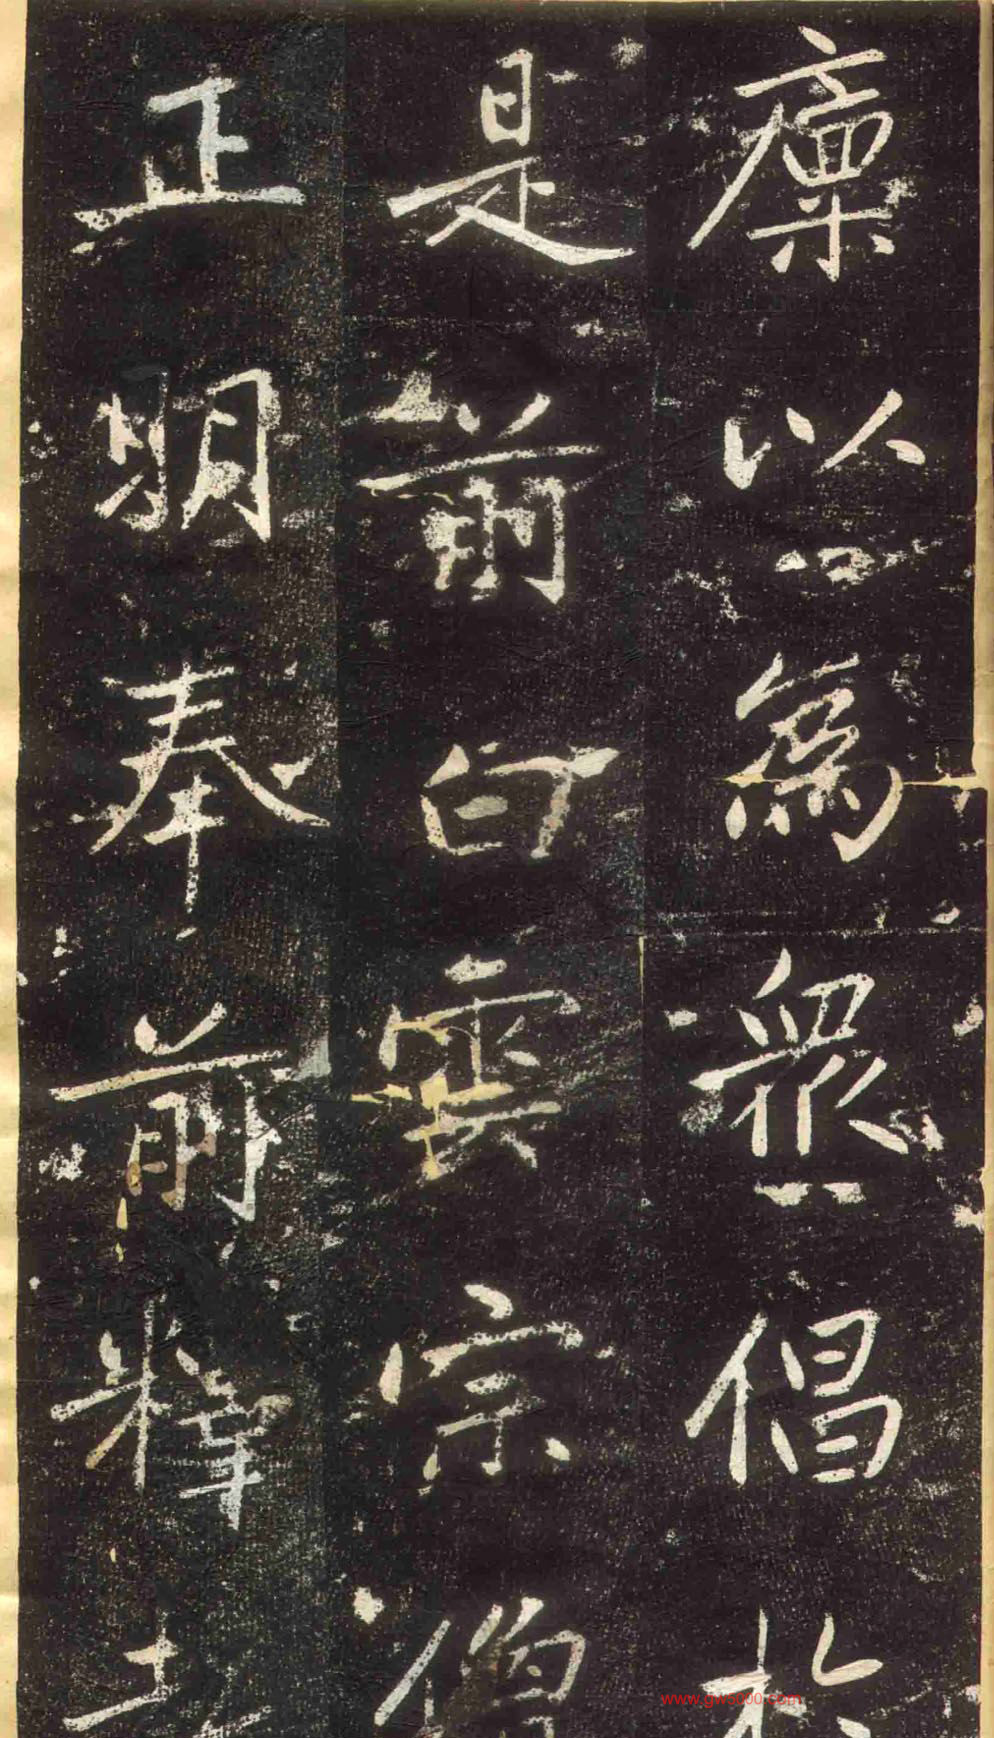 廩以爲眾倡於
是前白雲宗僧
正明奉前釋
www.gw5000.com